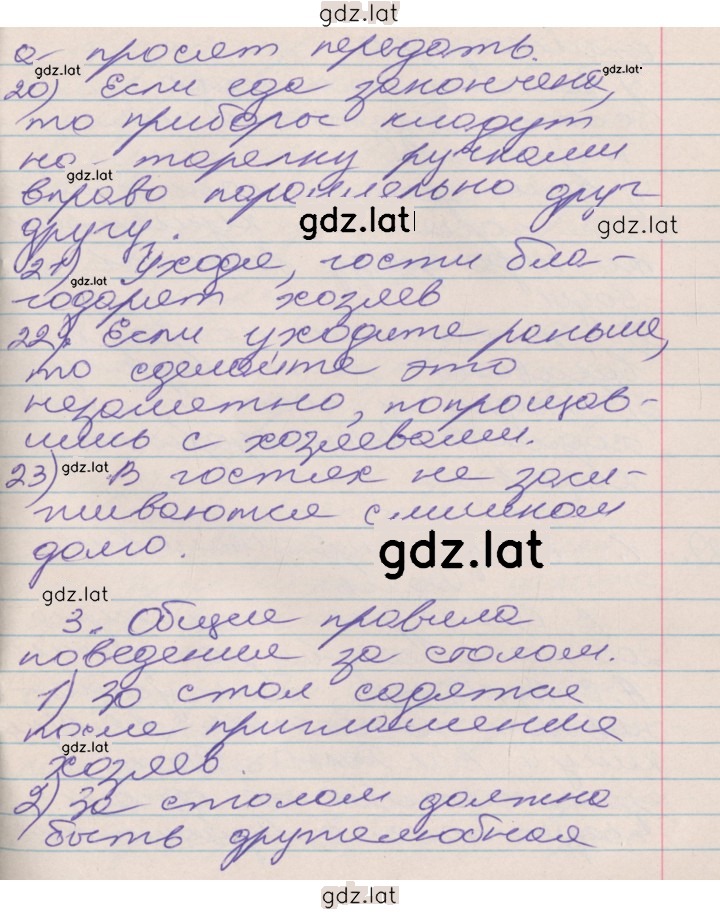 gdz.lat
а просят передать.
gdz.lat
gdz.lat
20) Если еда закончена,
то приборы кладут
на тарелку ручками
gdz.lat
вправо параллельно друг
другу.
gdz.lat
gdz.lat
21) Уходя, гости бла-
gdz.lat
годарят хозяев
gdz.lat
22) Если уходите раньше,
то сделайте это
незаметно, попрощав-
шись с хозяевами.
23) gdz.lat В гостях не заси-
живаются слишком
долго.
gdz.lat
gdz.lat
3. Общие правила
поведения за столом.
gdz.lat
1) За стол садятся
после приглашения
gdz.lat
хозяев.
2) За столом должна
быть дружелюбная
gdz.lat